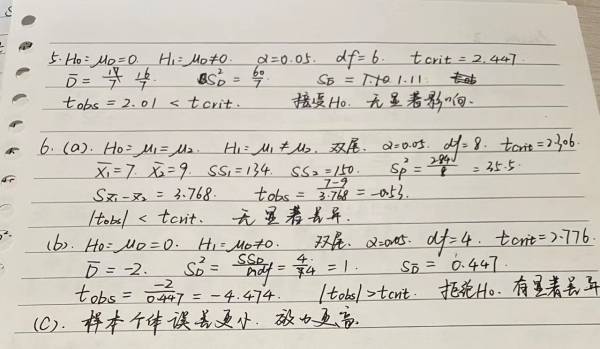 5. H0=μD=0. H1=μD≠0. α=0.05. df=6. tcrit=2.447.
D̄=16/7 SD²=60/7 SD̄=1.11.
tobs=2.01<tcrit. 接受H0. 无显著影响.
6. (a). H0=μ1=μ2. H1=μ1≠μ2. 双尾. α=0.05. df=8. tcrit=2.306.
X̄1=7. X̄2=9. SS1=134. SS2=150. Sp²=284/8=35.5.
SX̄1-X̄2=3.768. tobs=7-9/3.768=-0.53.
|tobs|<tcrit. 无显著差异.
(b). H0=μD=0. H1=μD≠0. 双尾. α=0.05. df=4. tcrit=2.776.
D̄=-2. SD²=SSD/df=4/4=1. SD̄=0.447.
tobs=-2/0.447=-4.474. |tobs|>tcrit. 拒绝H0. 有显著差异
(C). 样本个体误差更小. 效力更高.